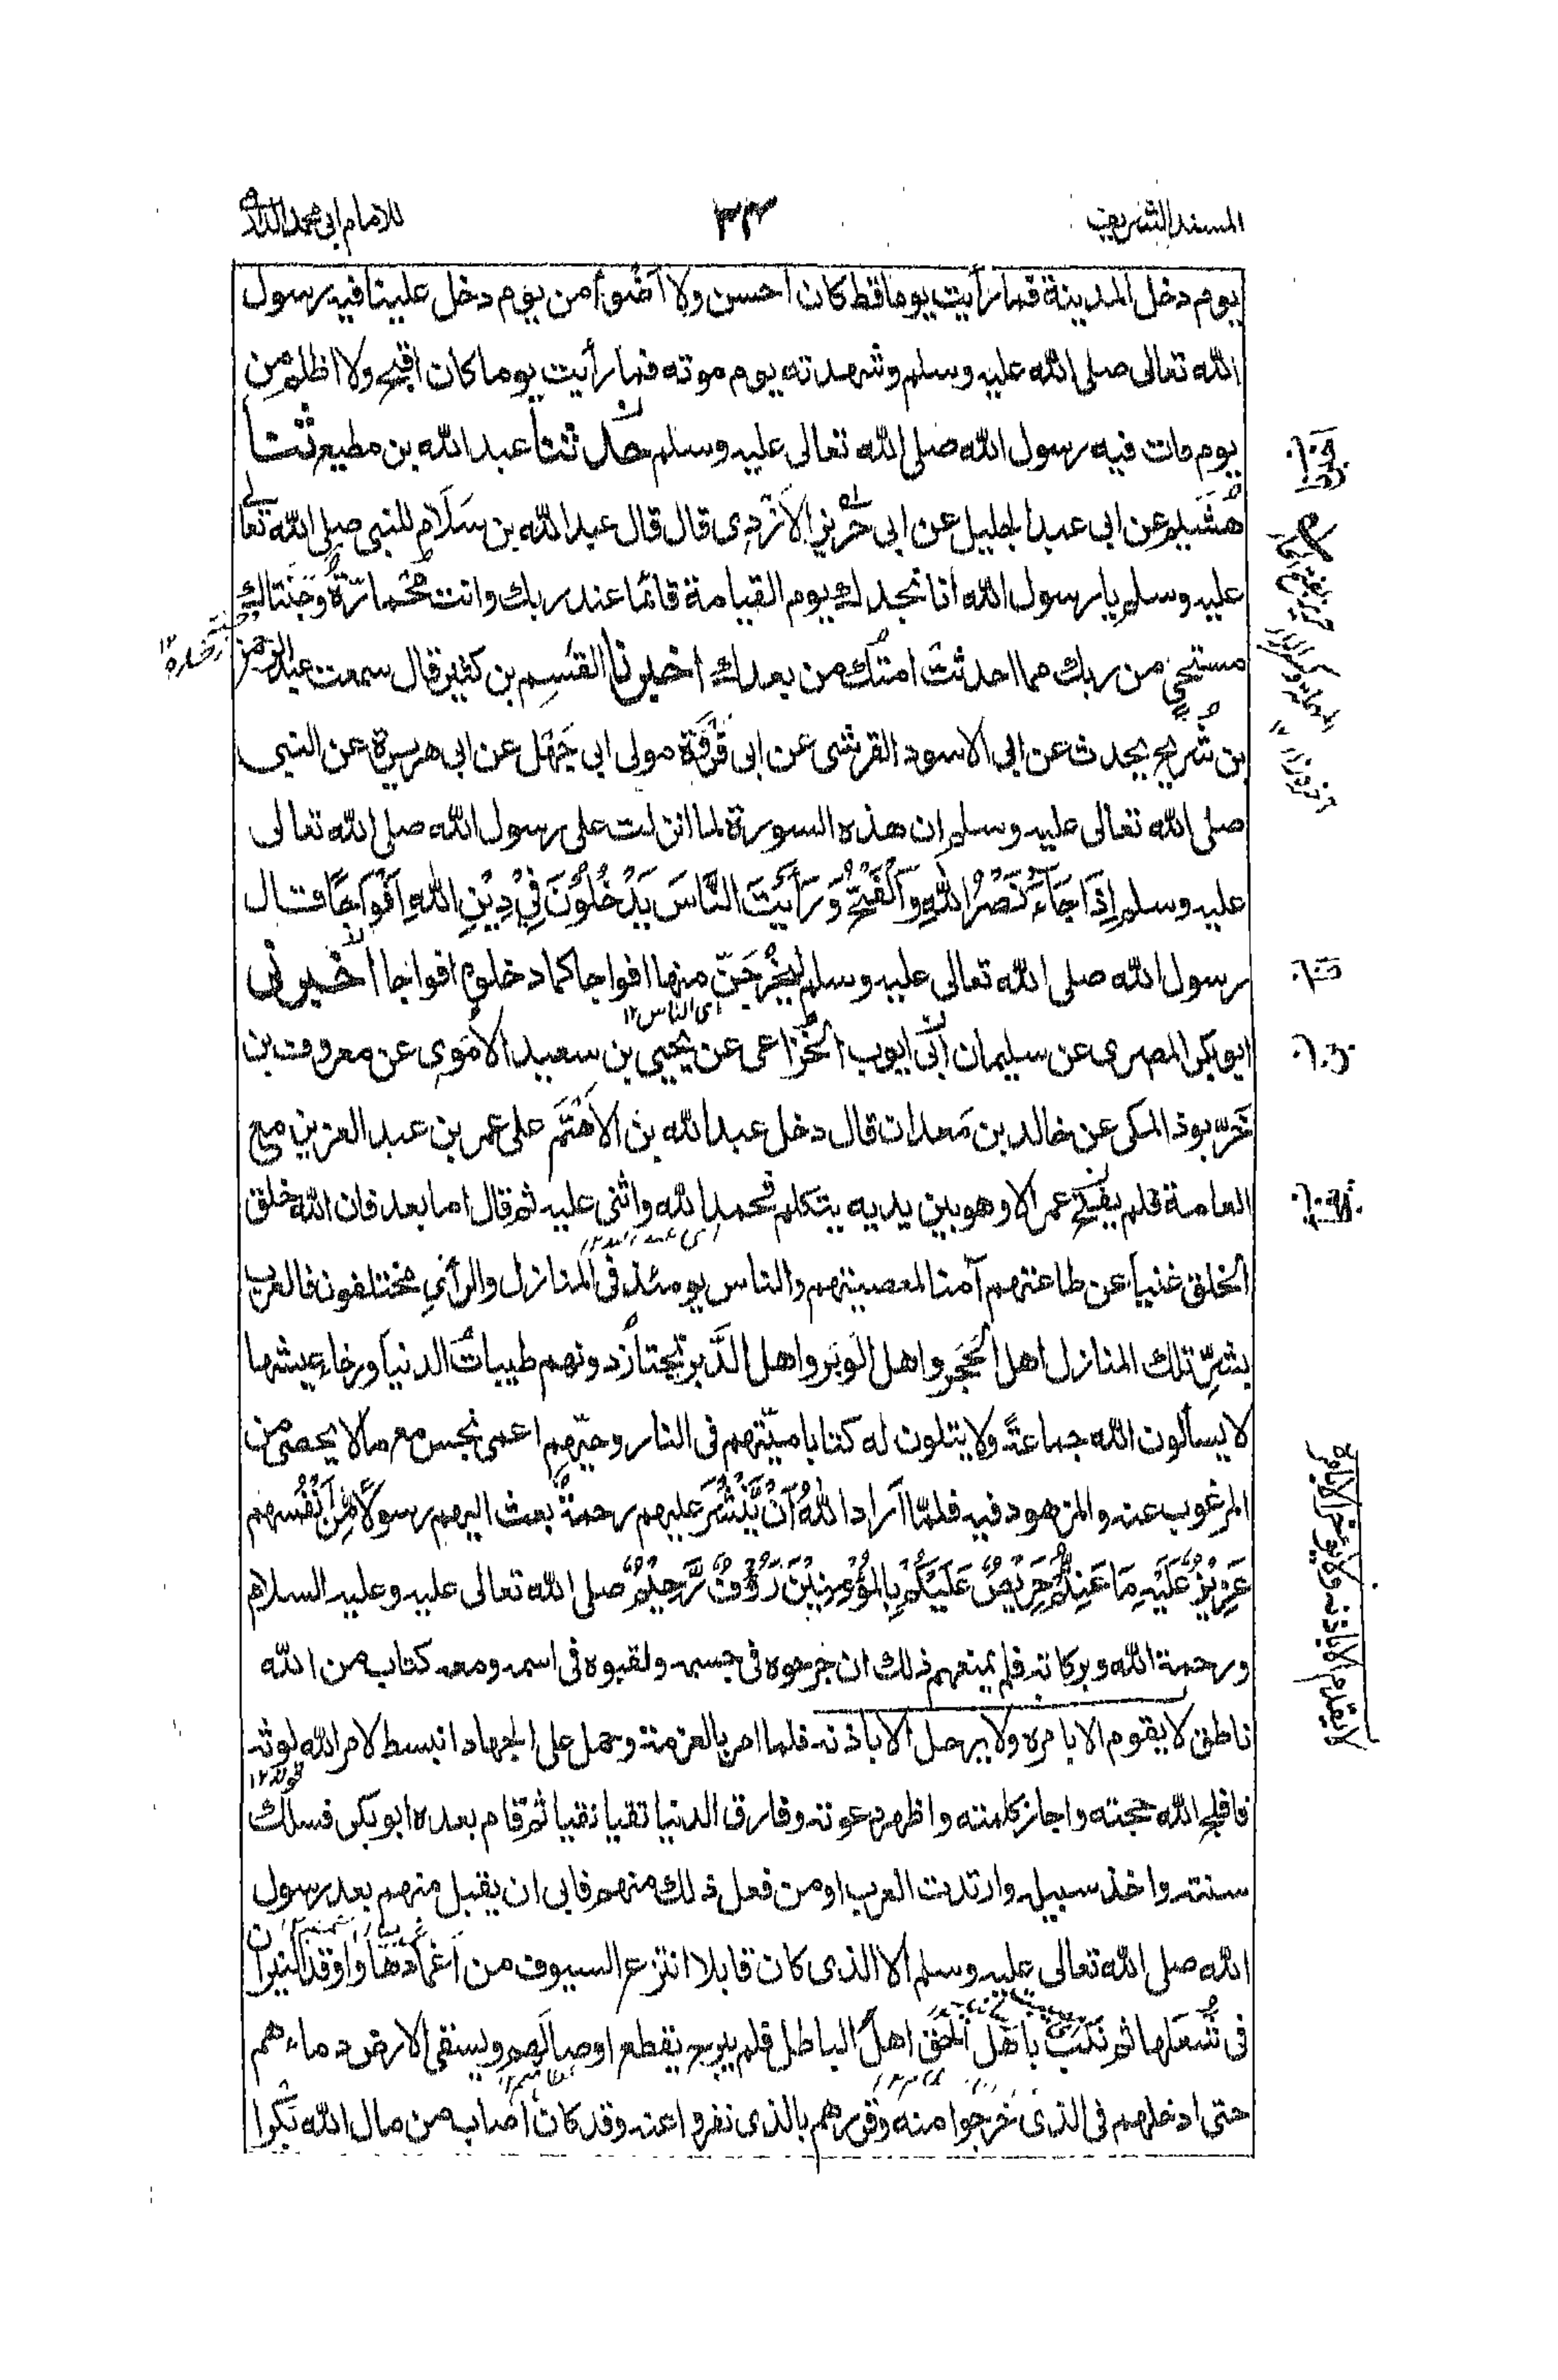 المسند الشريف
٣٤
للامام ابي محمد الدارمي
يوم دخل المدينة فما رأيت يوما قط كان احسن ولا اَضْوأ من يوم دخل علينا فيه رسول
الله تعالى صلى الله عليه وسلم وشهدته يوم موته فما رأيت يوما كان اقبح ولا اظلم من
يوم مات فيه رسول الله صلى الله تعالى عليه وسلم ثنا عبد الله بن مطيع ثنا
هُشَيم عن ابي عبد الجليل عن ابي حَريز الاَزدِى قال قال عبد الله بن سَلَام للنبي صلى الله تعالى
عليه وسلم يا رسول الله انا نجدك يوم القيامة قائما عند ربك وانت مُحْمارّةٌ وَجْنَتاك
مستحيٍ من ربك مما احدثَتْ امتُك من بعدك اخبرنا القٰسِم بن كثير قال سمعت عبد الرحمن
بن شُرَيح يحدث عن ابي الاسود القرشي عن ابي قُرّة مولى ابي جَهْل عن ابي هريرة عن النبي
صلى الله تعالى عليه وسلم ان هذه السورة لما انزلت على رسول الله صلى الله تعالى
عليه وسلم اِذَا جَآءَ نَصْرُ اللّٰهِ وَالْفَتْحُ وَرَأَيْتَ النَّاسَ يَدْخُلُوْنَ فِيْ دِيْنِ اللّٰهِ اَفْوَاجًا فقال
رسول الله صلى الله تعالى عليه وسلم ليَخْرُجَنّ منها افواجا كما دخلوه افواجا اخبرني
اى الناس ١٢
ابو بكر المصرى عن سليمان ابى ايوب الخُزَاعى عن يحيى بن سعيد الاُمَوِى عن معروف بن
خَرّبوذ المكى عن خالد بن مَعدان قال دخل عبد الله بن الاَهْتَم على عمر بن عبد العزيز مع
العامة فلم يفجَ عمر الا وهو بين يديه يتكلم فحمد الله واثنى عليه ثم قال اما بعد فان الله خلق
الخلق غنيا عن طاعتهم آمنا لمعصيتهم والناس يومئذ في المنازل والرأيِ مختلفون فالعرب
بشَرِّ تلك المنازل اهل الحَجَر واهل الوَبَر واهل الدَّبر تُجتاز دونهم طيباتُ الدنيا ورخاء عيشها
لا يسألون الله جماعةً ولا يتلون له كتابا ميّتهم في النار وحيّهم اعمى نجس مع ما لا يحصى من
المرغوب عنه والمزهود فيه فلمّا اَراد اللهُ اَنْ يَّنْشُرَ عليهم رحمةً بعث اليهم رسولًا مِّنْ اَنْفُسهم
عَزِيْزٌ عَلَيْهِ مَا عَنِتُّمْ حَرِيْصٌ عَلَيْكُمْ بِالْمُؤْمِنِيْنَ رَؤُوْفٌ رَّحِيْمٌ صلى الله تعالى عليه وعليه السلام
ورحمة الله وبركاته فلم يمنعهم ذلك ان جرحوه في جسمه ولقبوه في اسمه ومعه كتاب من الله
ناطق لا يقوم الا بامره ولا يرحل الا باذنه فلما امر بالعزمة وحمل على الجهاد انبسط لامر الله لوثه
قوته ١٢
فافلج الله حجته واجاز كلمته واظهر دعوته وفارق الدنيا تقيا نقيا ثم قام بعده ابو بكر فسلك
سنته واخذ سبيله وارتدت العرب او من فعل ذلك منهم فابى ان يقبل منهم بعد رسول
الله صلى الله تعالى عليه وسلم الا الذى كان قابلا انتزع السيوف من اَغْمادها واوقد النيران
في شُعَلها ثم نَكَبَ باهل الحق اهل الباطل فلم يبرح يقطع اوصالهم ويسقى الارض دماءهم
حتى ادخلهم في الذى خرجوا منه وقررهم بالذى نفروا عنه وقد كان اصاب من مال الله بَكْرا